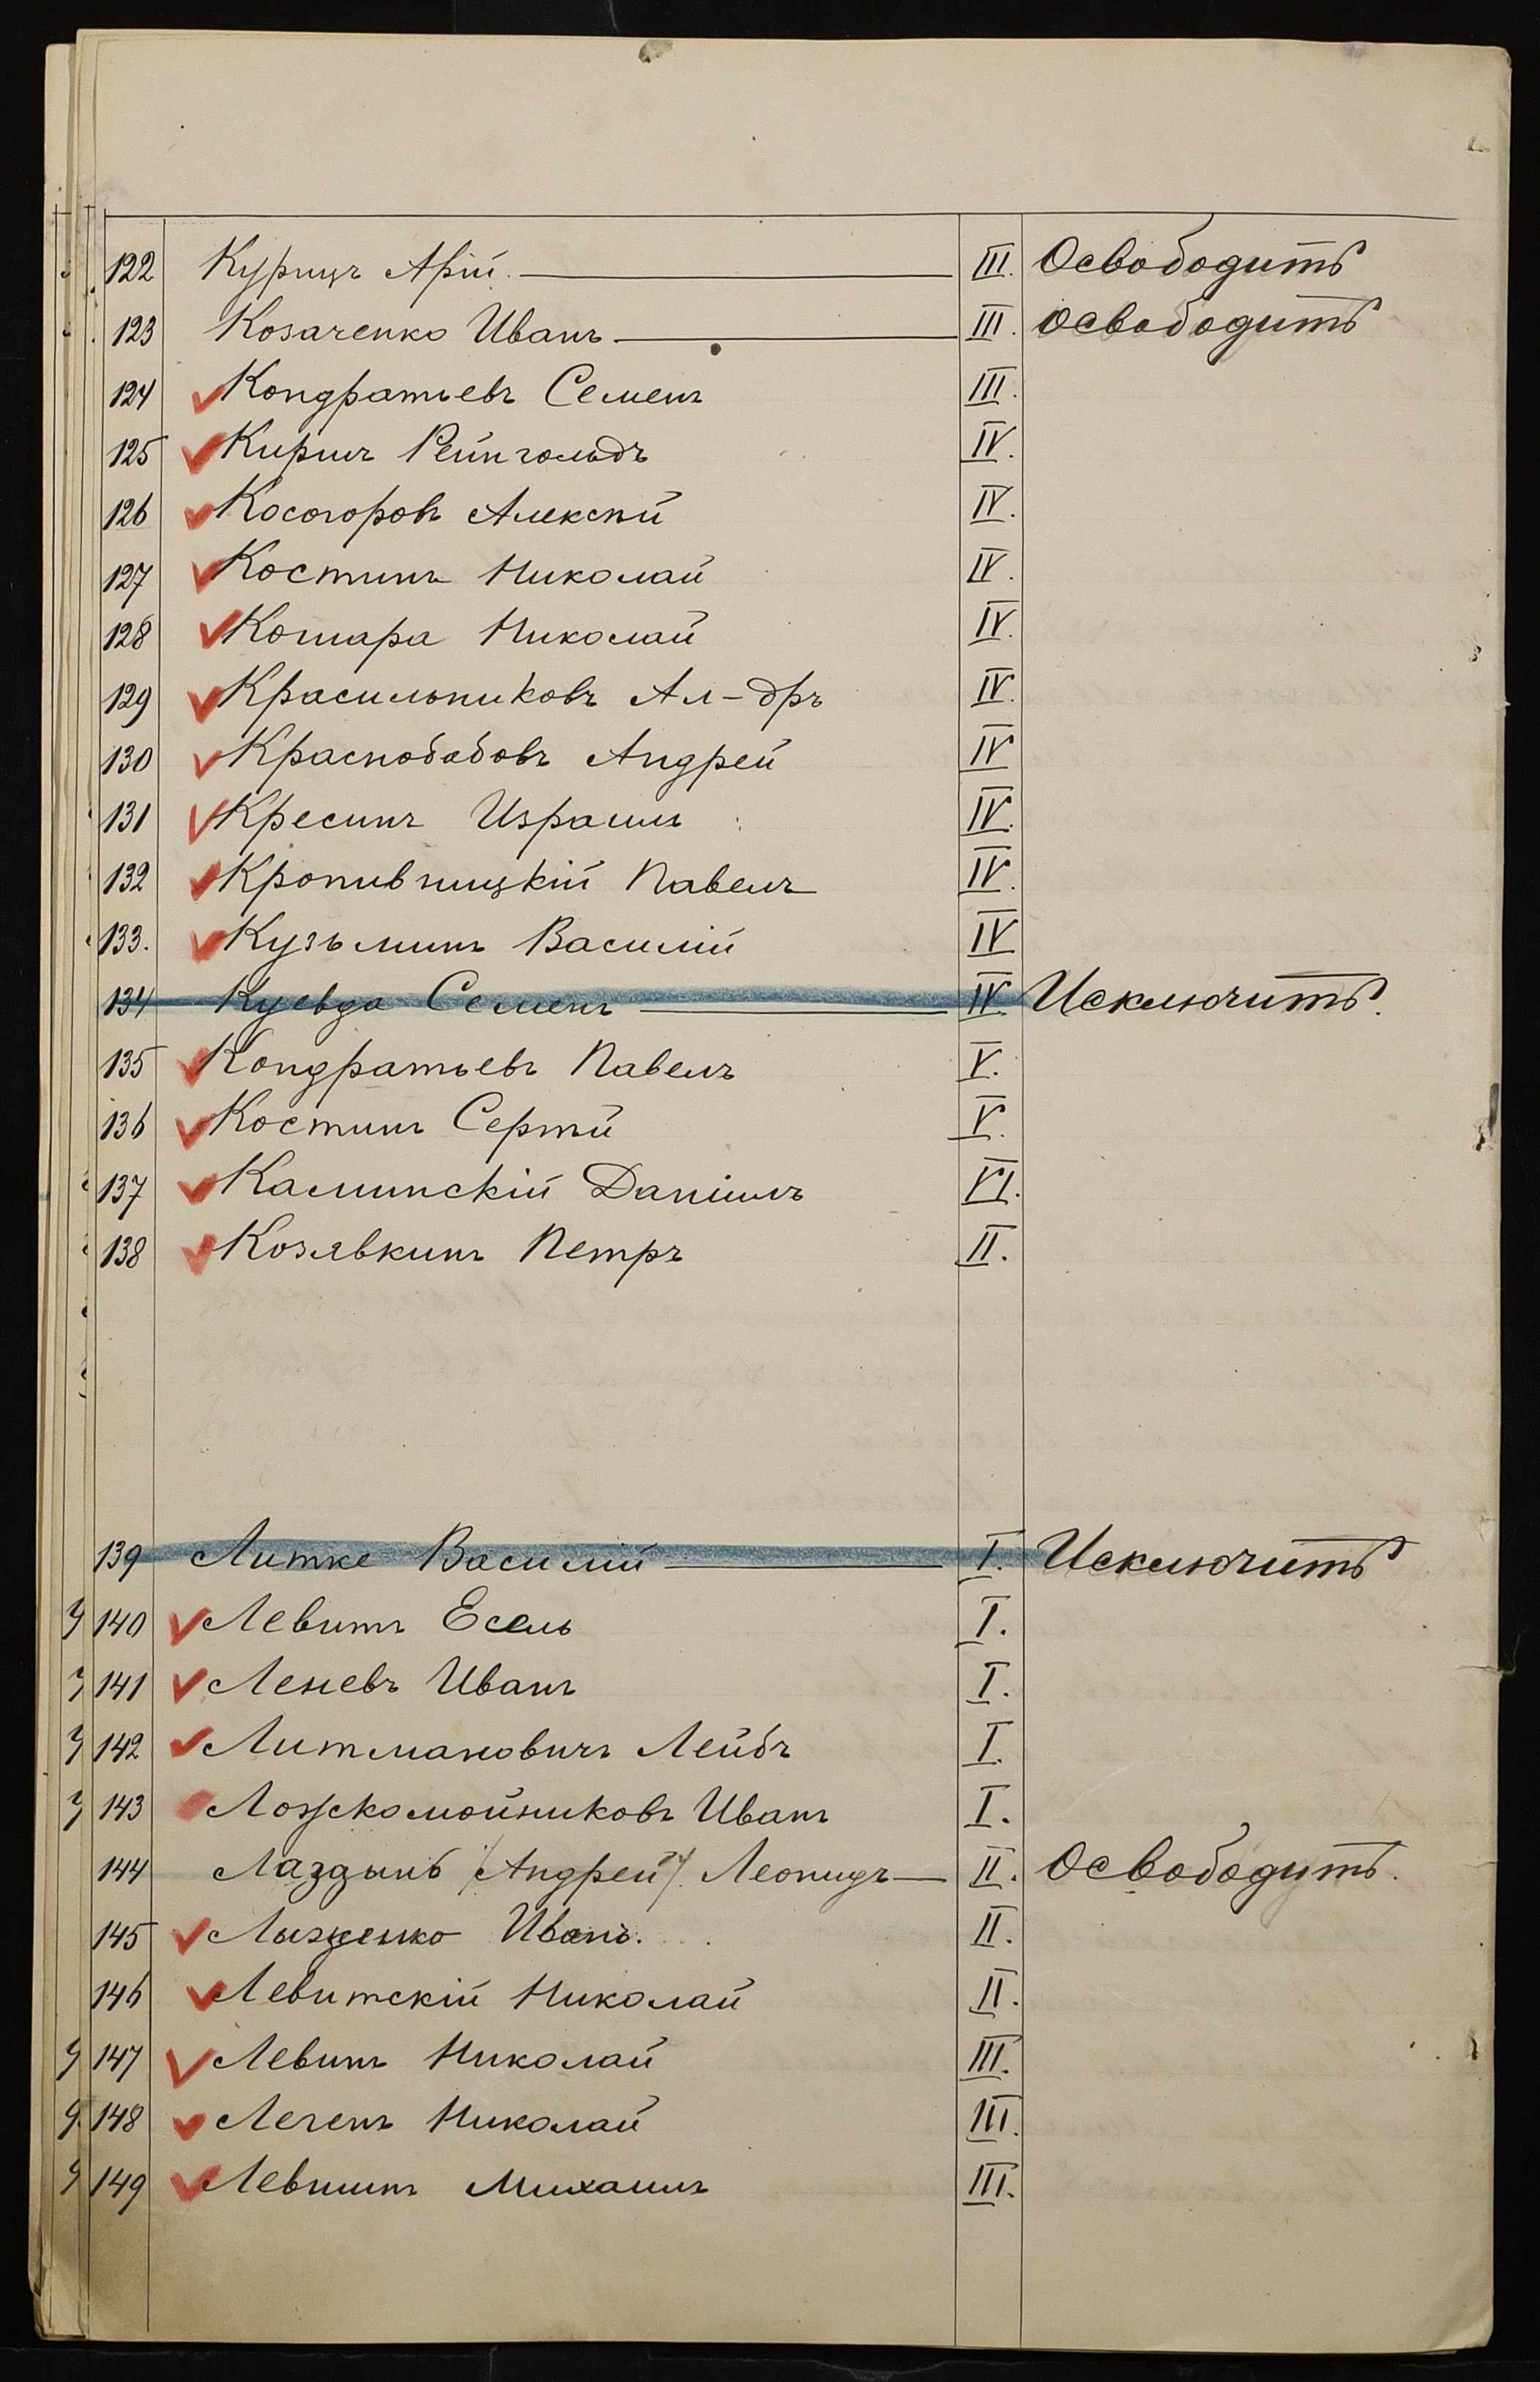 122 Курицъ Арій. III. Освободить
123 Козаченко Иванъ III. Освободить
124 Кондратьевъ Семенъ III.
125 Киршъ Рейнгольдъ IV.
126 Косогоровъ Алексѣй IV.
127 Костинъ Николай IV.
128 Кошара Николай IV.
129 Красильниковъ Ал-дръ IV.
130 Краснобабовъ Андрей IV
131 Кресинъ Израиль IV.
132 Кропивницкій Павелъ IV.
133. Кузьминъ Василій IV
134 Куевда Семенъ IV. Исключить.
135 Кондратьевъ Павелъ V.
136 Костинъ Сергѣй V.
137 Калинскій Даніилъ VI.
138 Козявкинъ Петръ II.
139 Литке Василій I. Исключить
140 Левитъ Есель I.
141 Леневъ Иванъ I.
142 Литмановичъ Лейбъ I.
143 Ложкомойниковъ Иванъ I.
144 Лаздынь /Андрей/ Леонидъ II. Освободить.
145 Иванъ. II.
146 Левитскій Николай II.
147 Левинъ Николай III.
148 Легенъ Николай III.
149 Левшинъ Михаилъ III.